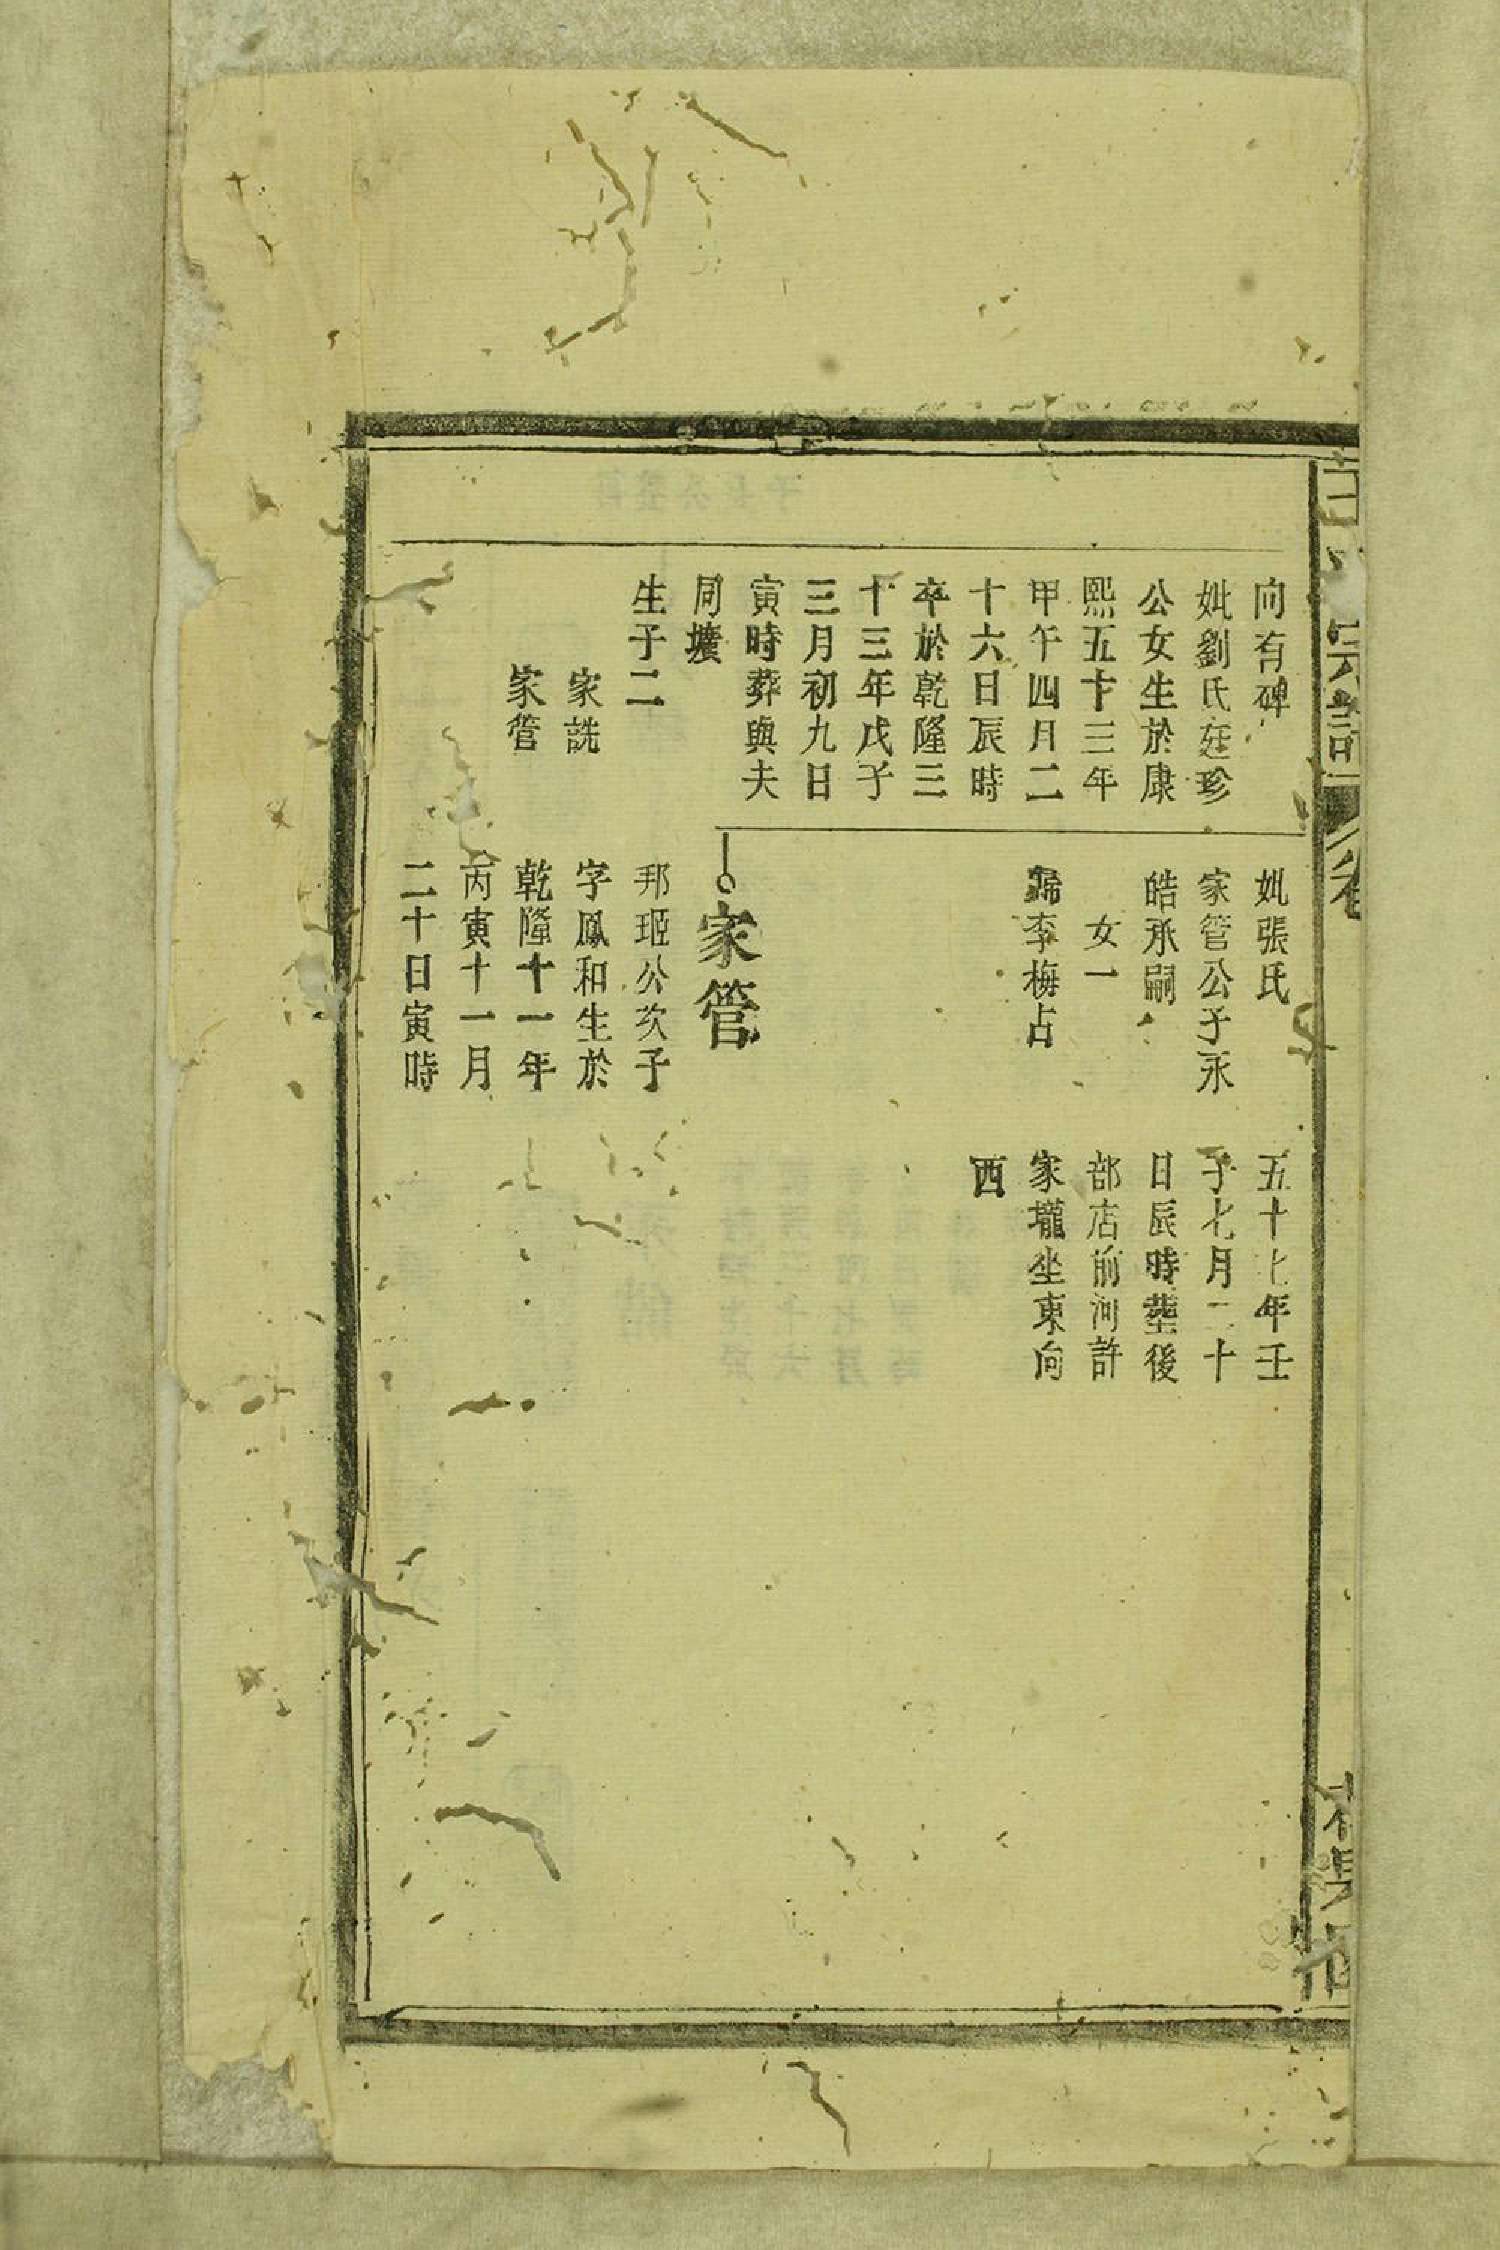 向有碑
妣劉氏廷珍
公女生於康
熙五十三年
甲午四月二
十六日辰時
卒於乾隆三
十三年戊子
三月初九日
寅時葬與夫
同壙
生子二
家詵
家管
妣張氏
家管公子承
皓承嗣
女一
歸李梅占
家管
邦珽公次子
字鳳和生於
乾隆十一年
丙寅十一月
二十日寅時
五十七年壬
子七月二十
日辰時塟後
部店前河許
家壠坐東向
西
宗譜
卷